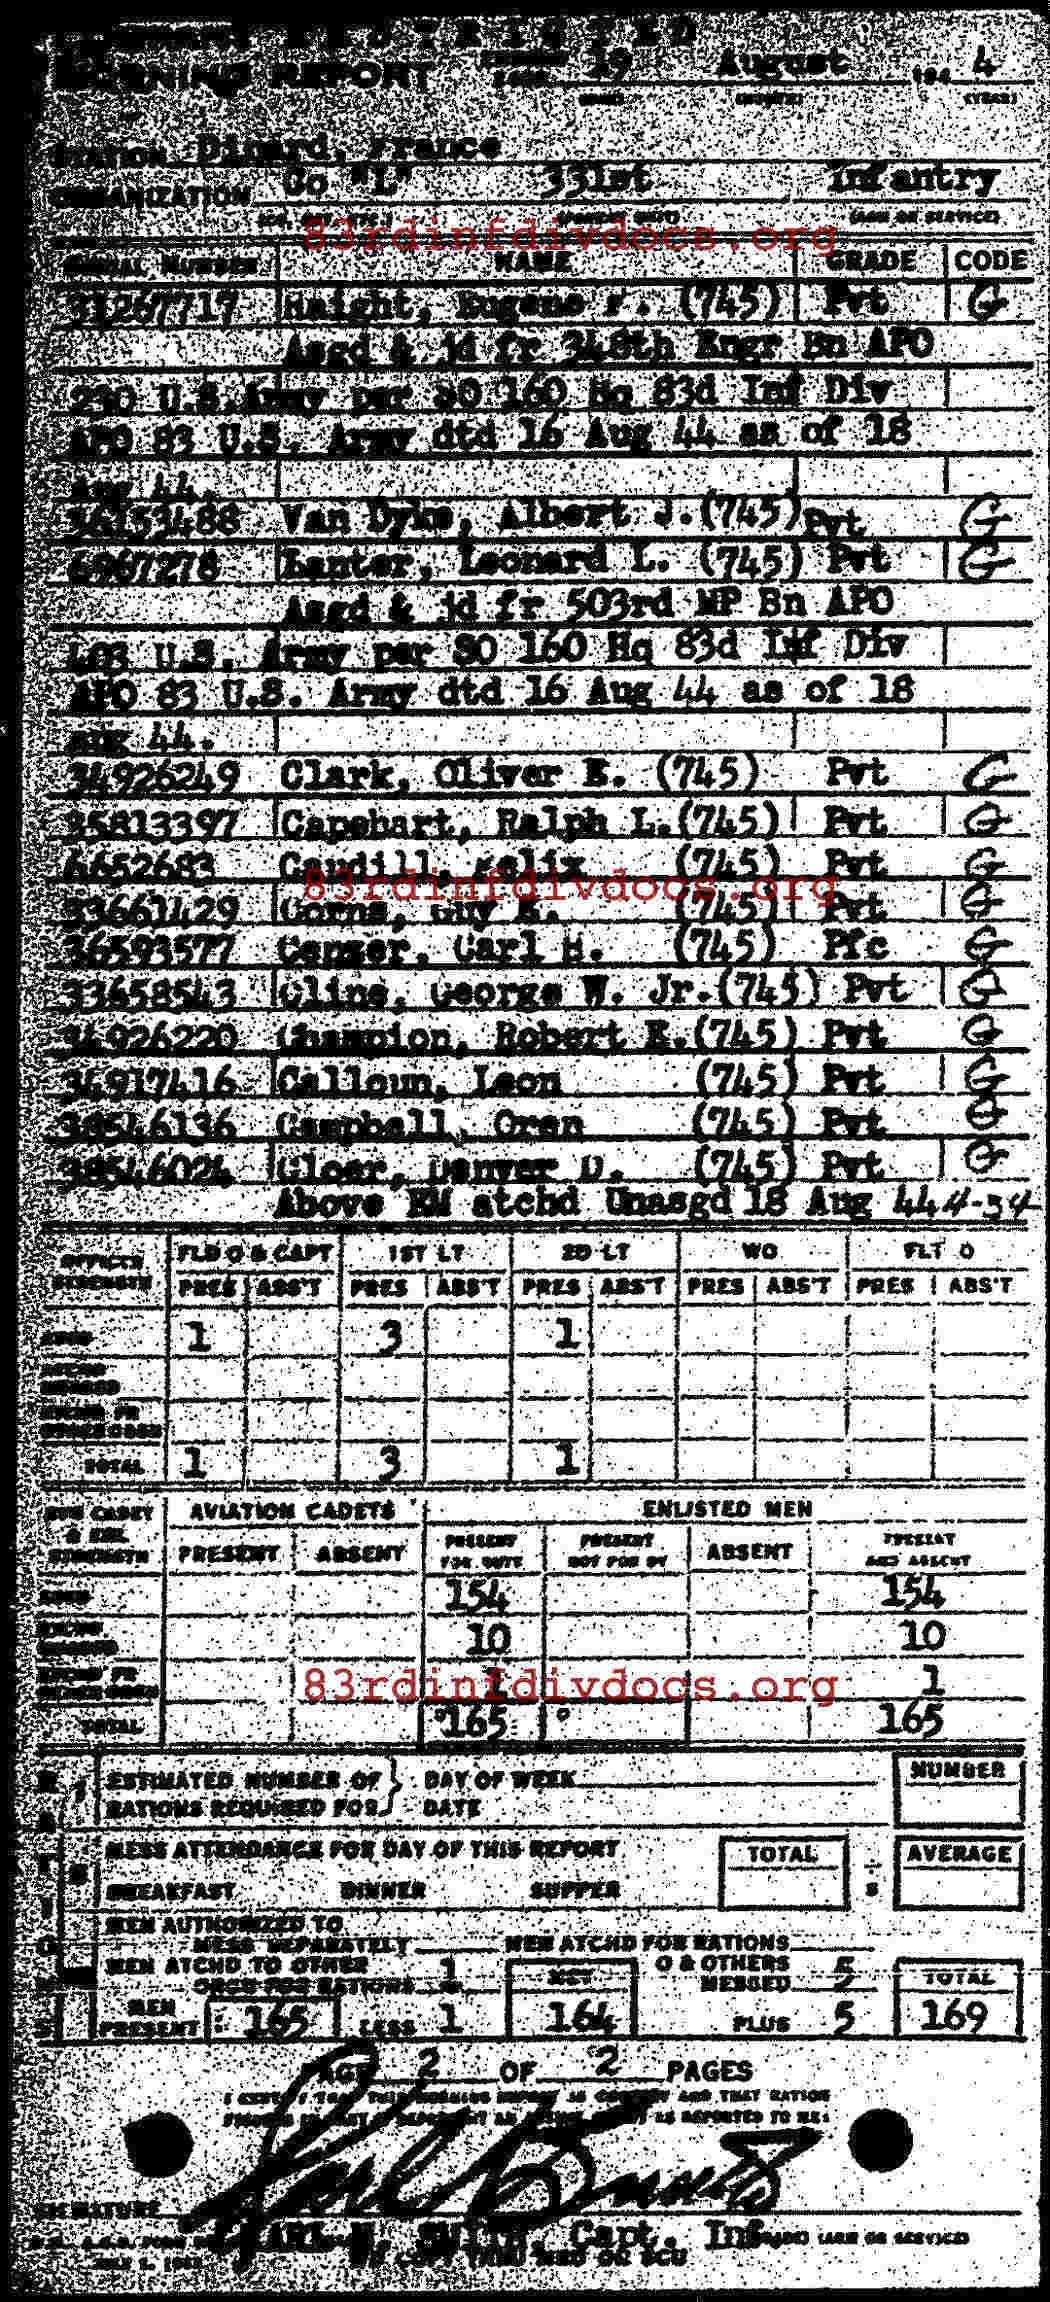 MORNING REPORT 19 August 194 4
STATION Dinard, France
ORGANIZATION Co "L" 331st Infantry
(ARM OR SERVICE)
83rdinfdivdocs.org
SERIAL NUMBER NAME GRADE CODE
31267717 Haight, Eugene F. (745) Pvt G
Asgd & jd fr 348th Engr Bn APO
230 U.S. Army per SO 160 Hq 83d Inf Div
APO 83 U.S. Army dtd 16 Aug 44 as of 18
Aug 44.
36153488 Van Dyke, Albert J. (745) Pvt G
6967278 Leonard L. (745) Pvt G
Asgd & jd fr 503rd MP Bn APO
403 U.S. Army per SO 160 Hq 83d Inf Div
APO 83 U.S. Army dtd 16 Aug 44 as of 18
Aug 44.
34926249 Clark, Oliver E. (745) Pvt G
35813397 Capehart, Ralph L. (745) Pvt G
6652683 Caudill, Felix (745) Pvt G
83rdinfdivdocs.org
33661429 Corns, Guy E. (745) Pvt G
36593577 Carl H. (745) Pfc G
33658543 Cline, George W. Jr. (745) Pvt G
34926220 Champion, Robert E. (745) Pvt G
34917416 Calloun, Leon (745) Pvt G
38546136 Campbell, Oran (745) Pvt G
38546024 Cloer, Denver D. (745) Pvt G
Above EM atchd Unasgd 18 Aug 44 4-34
OFFICER STRENGTH FLD O & CAPT 1ST LT 2D LT WO FLT O
PRES ABS'T PRES ABS'T PRES ABS'T PRES ABS'T PRES ABS'T
ASGD 1 3 1
TOTAL 1 3 1
AVN CADET & ENL STRENGTH AVIATION CADETS ENLISTED MEN
PRESENT ABSENT PRESENT FOR DUTY PRESENT NOT FOR DY ABSENT PRESENT AND ABSENT
ASGD 154 154
10 10
83rdinfdivdocs.org
1 1
TOTAL 165 165
RATIONS
ESTIMATED NUMBER OF RATIONS REQUIRED FOR } DAY OF WEEK NUMBER
DATE
MESS ATTENDANCE FOR DAY OF THIS REPORT TOTAL ÷ AVERAGE
BREAKFAST DINNER SUPPER 3
MEN AUTHORIZED TO
MESS SEPARATELY MEN ATCHD FOR RATIONS
MEN ATCHD TO OTHER ORGS FOR RATIONS 1 NET O & OTHERS MESSED 5 TOTAL
MEN PRESENT 165 LESS 1 164 PLUS 5 169
PAGE 2 OF 2 PAGES
I CERTIFY THAT THIS MORNING REPORT IS CORRECT AND THAT RATION
SIGNATURE
SMITH, Capt. Inf (ARM OR SERVICE)